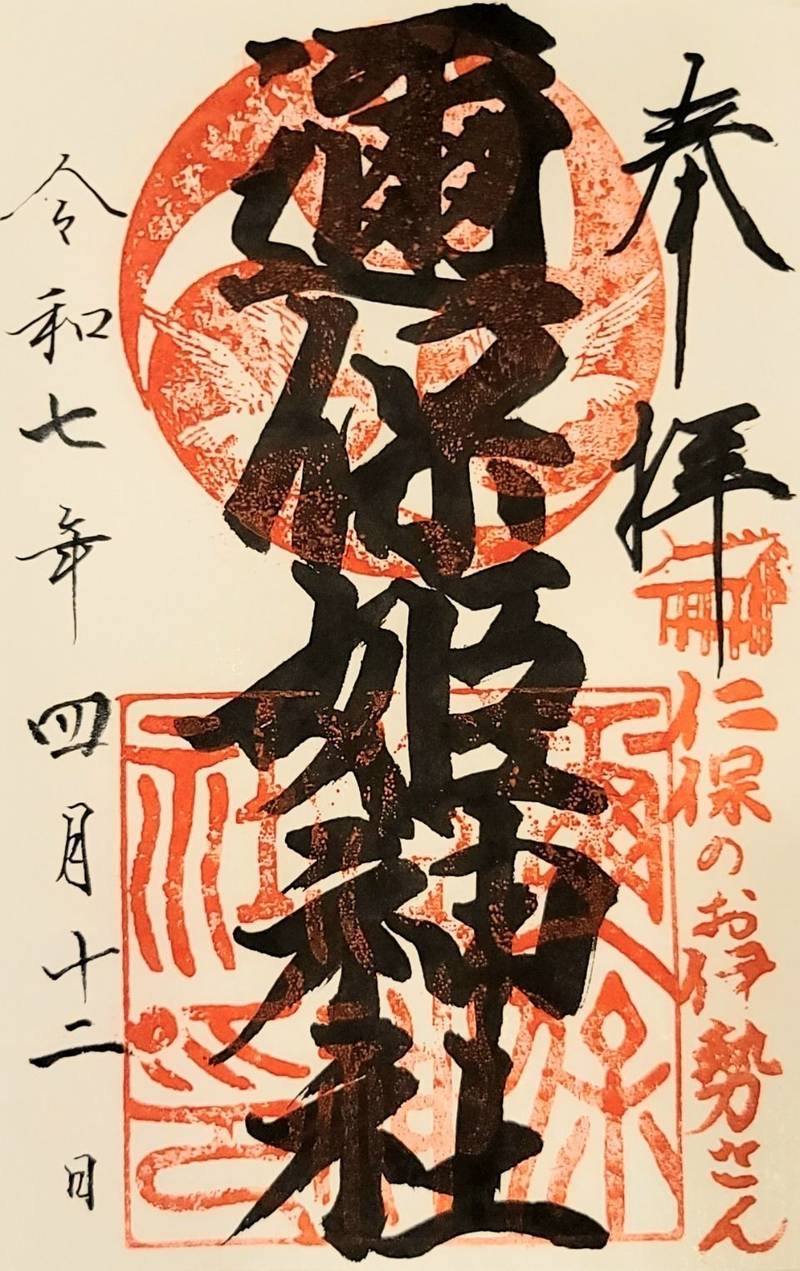 奉拝
仁保のお伊勢さん
邇保姫神社
令和七年四月十二日